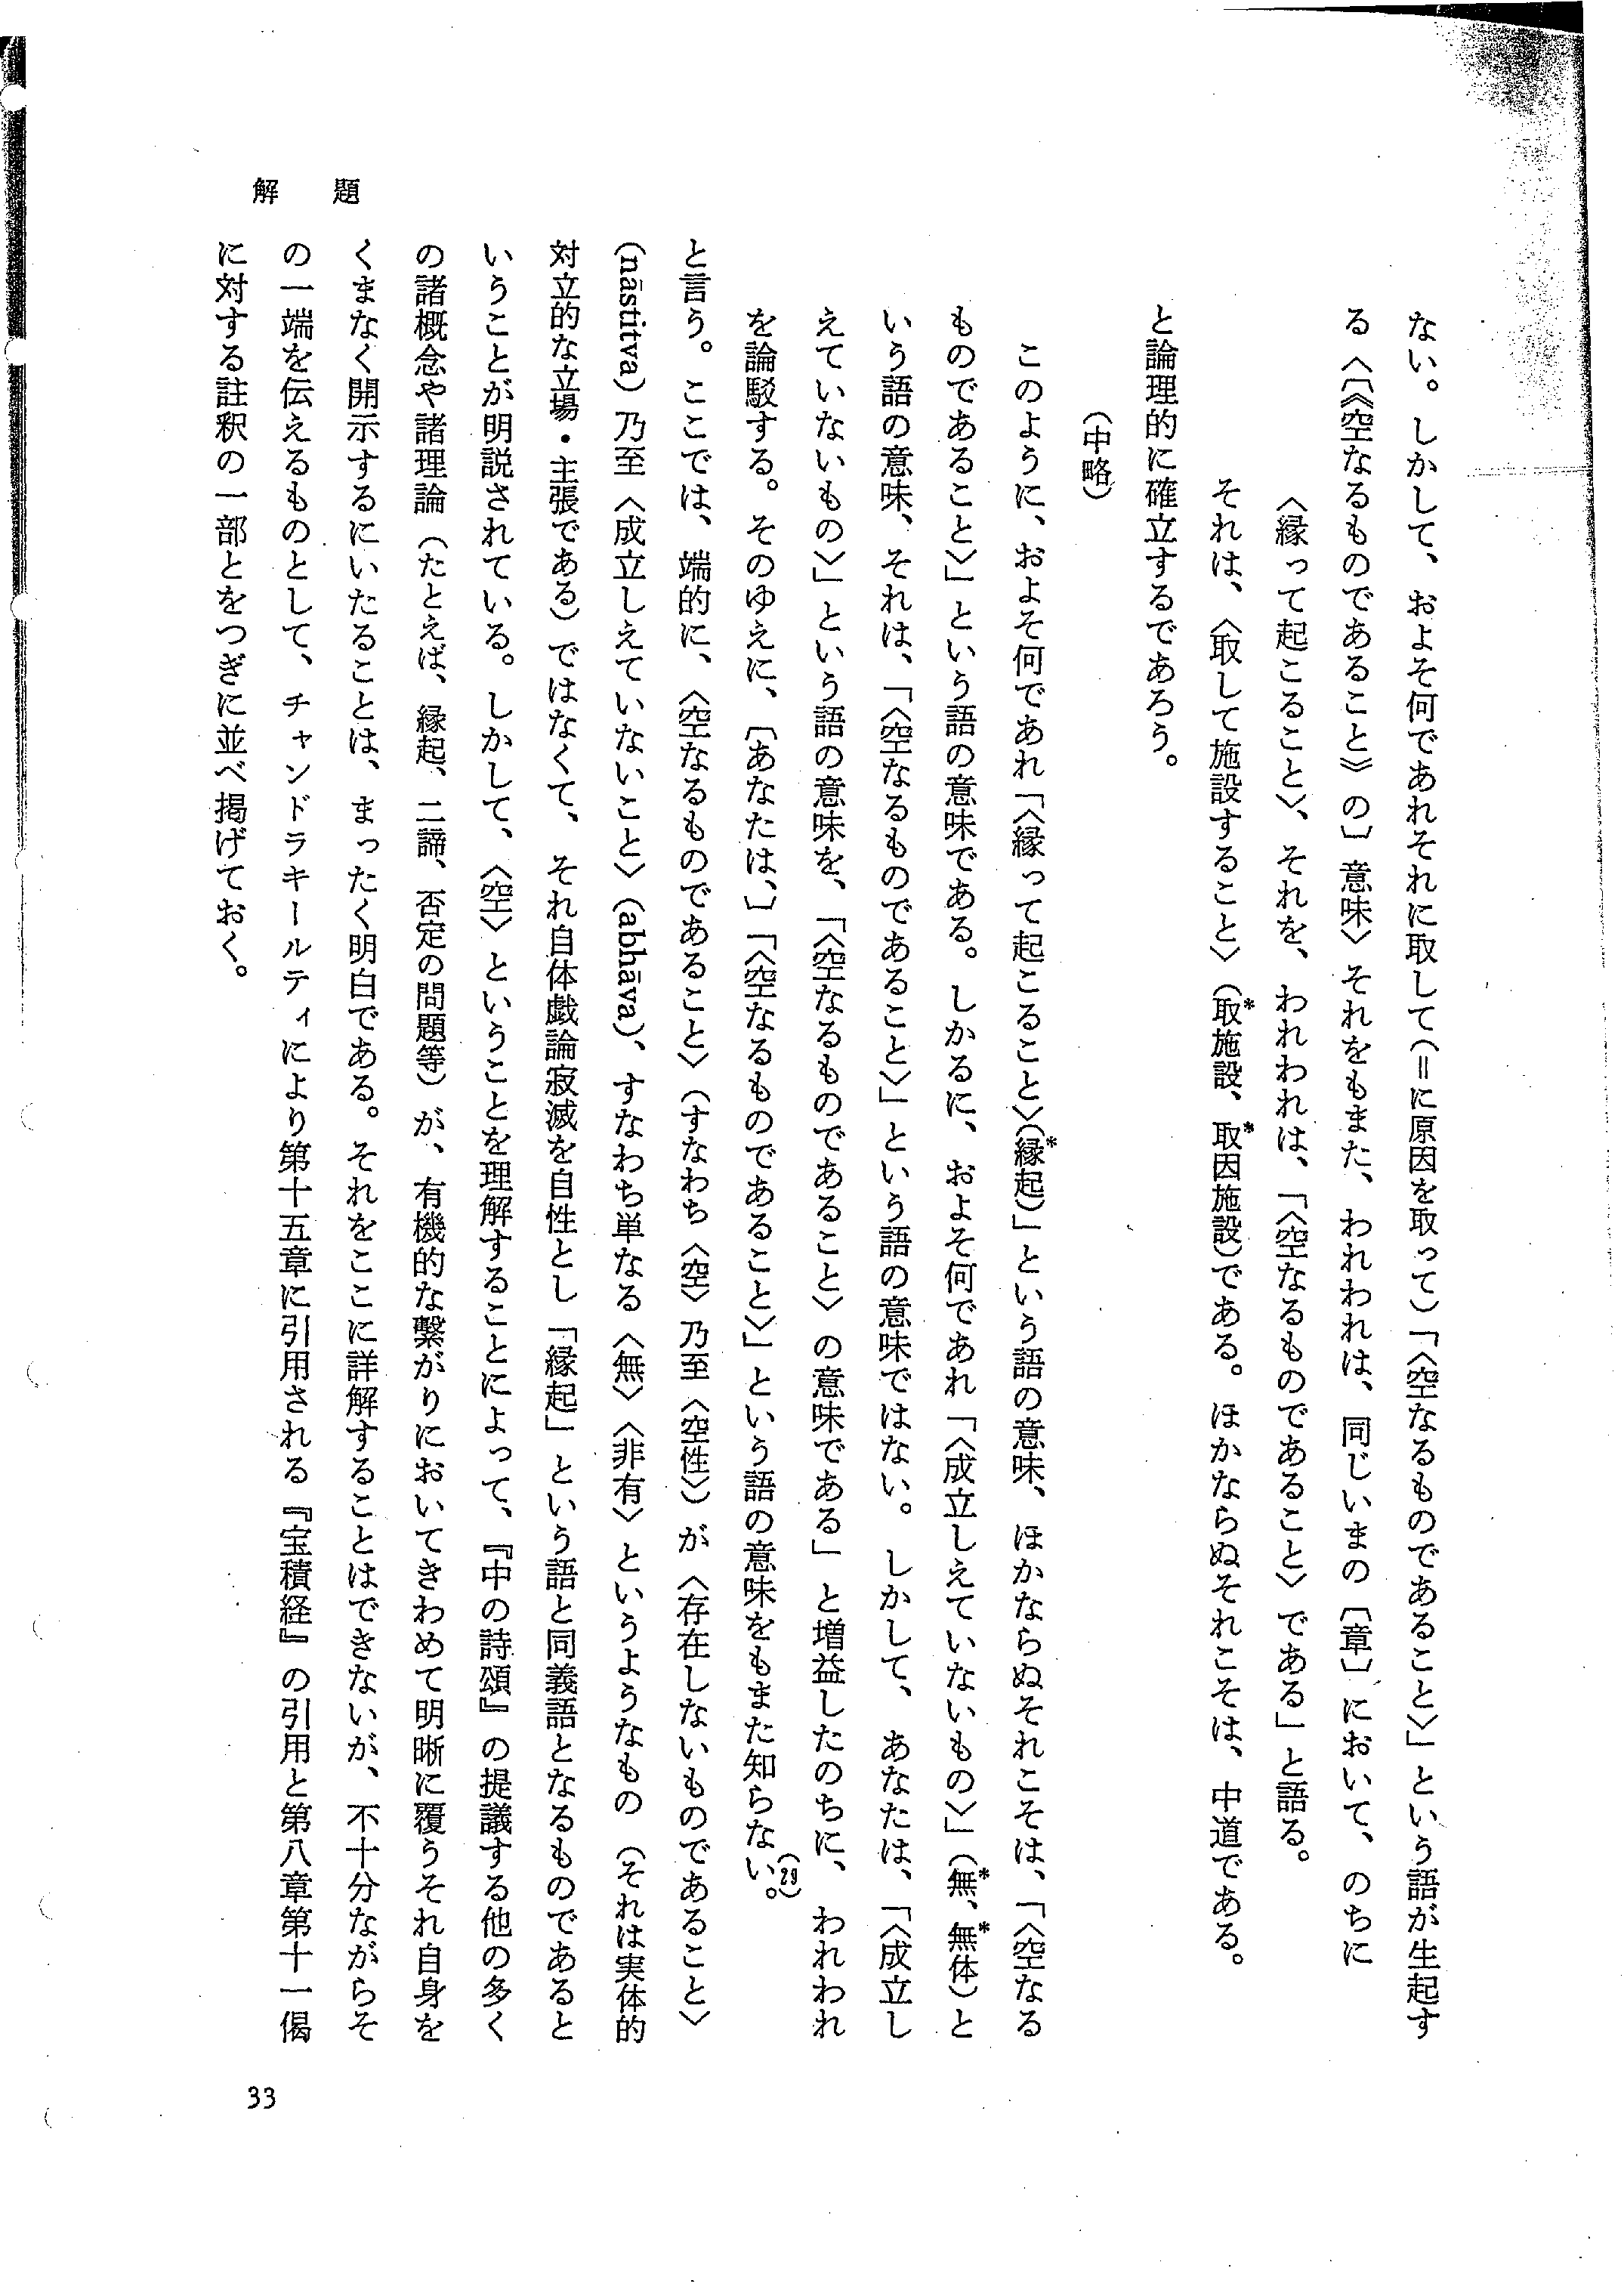 解題
ない。しかして、およそ何であれそれに取して(＝に原因を取って)「〈空なるものであること〉」という語が生起す
る〈〔《空なるものであること》の〕意味〉それをもまた、われわれは、同じいまの〔章〕において、のちに
〈縁って起こること〉、それを、われわれは、「〈空なるものであること〉である」と語る。
それは、〈取して施設すること〉(取*施設、取*因施設)である。ほかならぬそれこそは、中道である。
と論理的に確立するであろう。
(中略)
このように、およそ何であれ「〈縁って起こること〉(縁*起)」という語の意味、ほかならぬそれこそは、「〈空なる
ものであること〉」という語の意味である。しかるに、およそ何であれ「〈成立しえていないもの〉」(無*、無*体)と
いう語の意味、それは、「〈空なるものであること〉」という語の意味ではない。しかして、あなたは、「〈成立し
えていないもの〉」という語の意味を、「〈空なるものであること〉の意味である」と増益したのちに、われわれ
を論駁する。そのゆえに、〔あなたは、〕「〈空なるものであること〉」という語の意味をもまた知らない。(29)
と言う。ここでは、端的に、〈空なるものであること〉(すなわち〈空〉乃至〈空性〉)が〈存在しないものであること〉
(nāstitva)乃至〈成立しえていないこと〉(abhāva)、すなわち単なる〈無〉〈非有〉というようなもの(それは実体的
対立的な立場・主張である)ではなくて、それ自体戯論寂滅を自性とし「縁起」という語と同義語となるものであると
いうことが明説されている。しかして、〈空〉ということを理解することによって、『中の詩頌』の提議する他の多く
の諸概念や諸理論(たとえば、縁起、二諦、否定の問題等)が、有機的な繋がりにおいてきわめて明晰に覆うそれ自身を
くまなく開示するにいたることは、まったく明白である。それをここに詳解することはできないが、不十分ながらそ
の一端を伝えるものとして、チャンドラキールティにより第十五章に引用される『宝積経』の引用と第八章第十一偈
に対する註釈の一部とをつぎに並べ掲げておく。
33